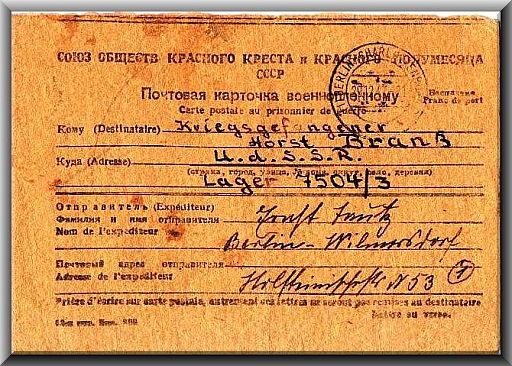 СОЮЗ ОБЩЕСТВ КРАСНОГО КРЕСТА и КРАСНОГО ПОЛУМЕСЯЦА
СССР
Почтовая карточка военнопленному
Carte postale au prisonnier de guerre
Бесплатно
Franc de port
Кому (Destinataire) Kriegsgefangener
Horst Branz
Куда (Adresse) U.d.S.S.R.
(страна, город, улица, № дома, округ, село, деревня)
Lager 7504/3
Отправитель (Expéditeur)
Фамилия и имя отправителя Ernst
Nom de l'expéditeur Berlin-Wilmersdorf
Почтовый адрес отправителя
Adresse de l'expéditeur N 53
Prière d'écrire sur carte postale, autrement ces lettres ne seront pas remises au destinataire